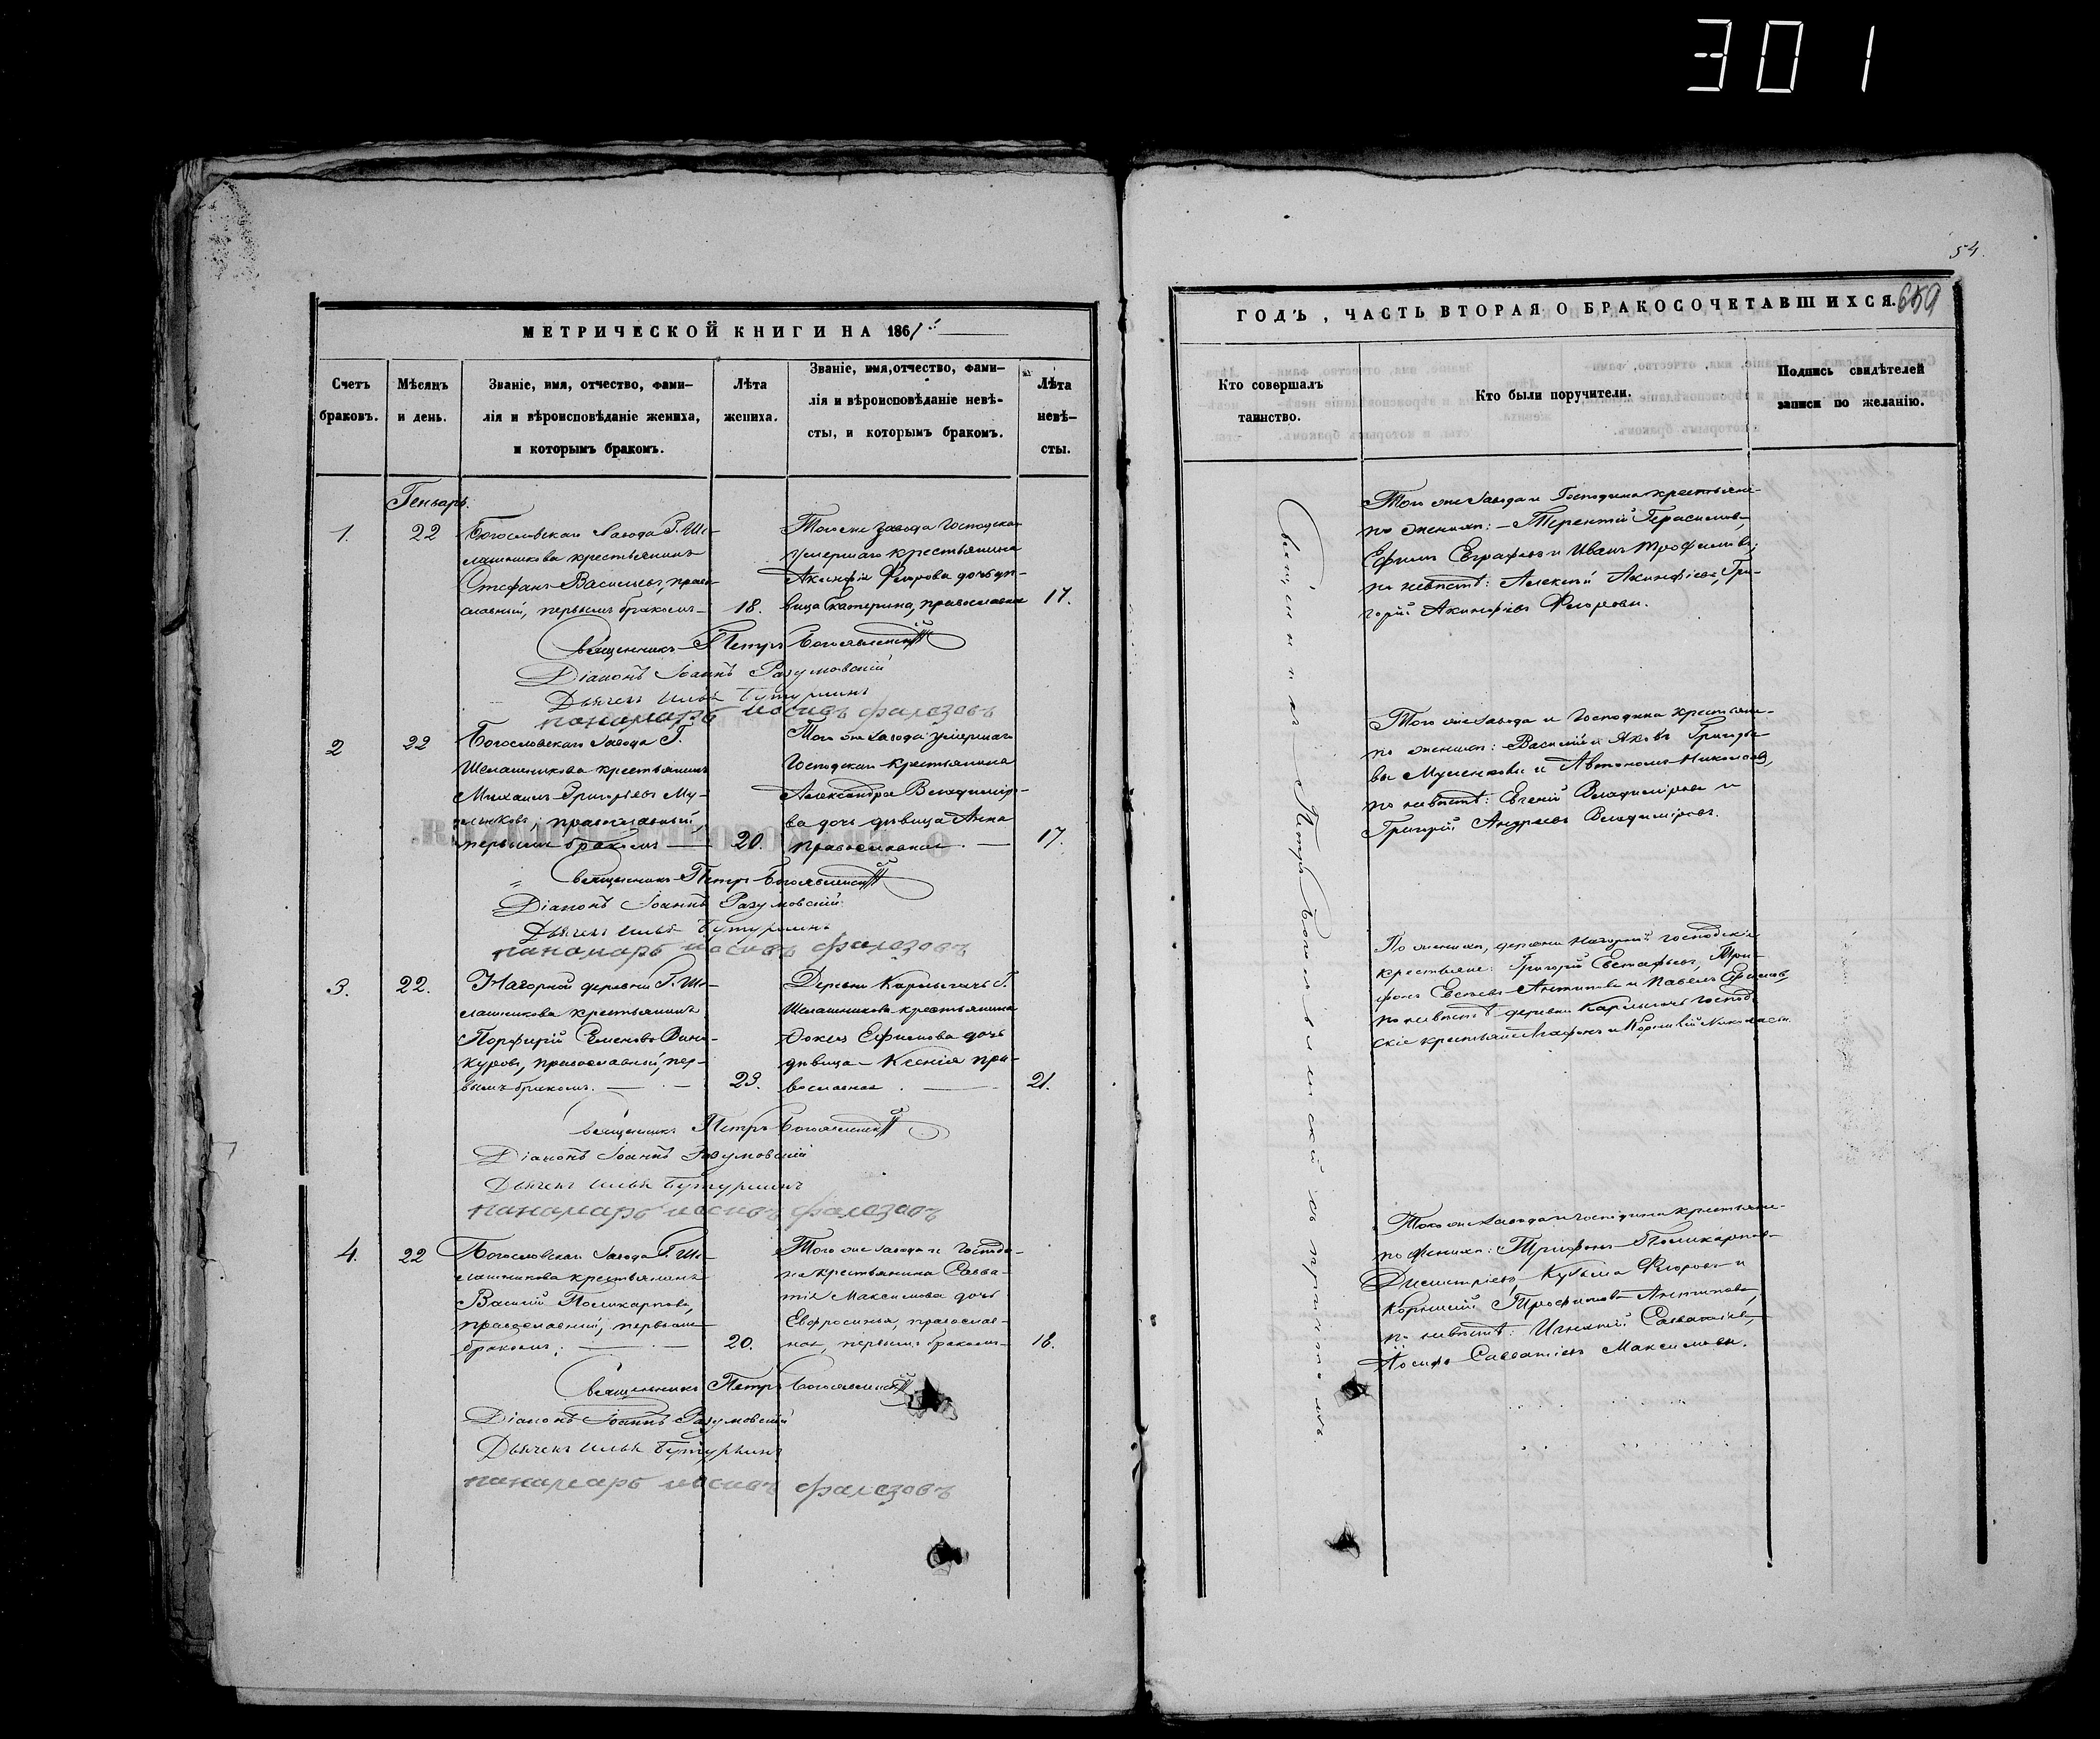 301
54.
МЕТРИЧЕСКОЙ КНИГИ НА 1861й
Счетъ браковъ.
Мѣсяцъ и день.
Званіе, имя, отчество, фами-
лія и вѣроисповѣданіе жениха,
и которымъ бракомъ.
Лѣта жениха.
Званіе, имя, отчество, фами-
лія и вѣроисповѣданіе невѣ-
сты, и которымъ бракомъ.
Лѣта
невѣ-
сты.
Генварь.
1. 22
Богословскаго Завода Г. Ше-
лашникова крестьянинъ
Стефанъ Васильевъ, право-
славный, первымъ бракомъ
18.
Того же завода Господскаго
умершаго крестьянина
Акинфія Федорова дочь дѣ-
вица Екатерина, православная
17.
Священникъ Петръ Богоявленскій
Діаконъ Іоаннъ Разумовскій
Дьячекъ Илья Бутурлинъ
панамарь иосивъ фалезовъ
2 22
Богословскаго Завода Г.
Шелашникова крестьянинъ
Михаилъ Григорьевъ Му-
православный
первымъ бракомъ
20.
Того же Завода умершаго
Господскаго крестьянина
Александра Владимiро-
ва дочь дѣвица Анна
православная
17.
Священникъ Петръ Богоявленскій
Діаконъ Іоаннъ Разумовскій
Дьячекъ Илья Бутурлинъ
панамарь иосивъ фалезовъ
3. 22.
Нагорной деревни Г. Ше-
лашникова крестьянинъ
Порфирій Семеновъ Вино-
куровъ, православный, пер-
вымъ бракомъ.
23.
Деревни Кармыгачъ Г.
Шелашникова крестьянина
Ефимова дочь
дѣвица Ксенія пра-
вославная
21.
Священникъ Петръ Богоявленскій
Діаконъ Іоаннъ Разумовскій
Дьячекъ Илья Бутурлинъ
панамарь иосивъ фалезовъ
4. 22
Богословскаго Завода Г. Ше-
лашникова крестьянинъ
Василій Поликарповъ,
православный, первымъ
бракомъ.
20.
Того же Завода и Господи-
на крестьянина Савва-
тія Максимова дочь
Евфросинья, православ-
ная, первымъ бракомъ
18.
Священникъ Петръ Богоявленскій
Діаконъ Іоаннъ Разумовскій
Дьячекъ Илья Бутурлинъ
панамарь иосивъ фалезовъ
ГОДЪ, ЧАСТЬ ВТОРАЯ О БРАКОСОЧЕТАВШИХСЯ.
659
Кто совершалъ
таинство.
Кто были поручители.
Подпись свидѣтелей
записи по желанію.
Священникъ Петръ Богоявленскій съ причтомъ
Того же Завода и Господина крестьяне
по женихѣ: Терентій Герасимовъ,
Ефимъ Евграфовъ и Иванъ Трофимовъ;
по невѣстѣ: Алексѣй Акинфіевъ, Гри-
горій Акинфіевъ Федоровы.
Того же Завода и Господина крестьяне
по женихѣ: Василій и Яковъ Григорье-
вы и Автономъ Николаевъ,
по невѣстѣ: Евгеній Владиміровъ и
Григорій Андреевъ Владиміровъ.
По женихѣ, деревни Нагорной господскіе
крестьяне: Григорій Евстафьевъ, Три-
фонъ Антиповъ и Павелъ Ефимовъ,
по невѣстѣ деревни Кармыгачъ господ-
скіе крестьяне Агафонъ и Корнилій
Того же Завода и господина крестьяне
по женихѣ: Трифонъ Поликарповъ
Димитріевъ, Кузьма Федоровъ и
Корнилій Трофимовъ Антиповъ,
по невѣстѣ: Игнатій Савватіевъ,
Іосифъ Савватіевъ Максимовы.